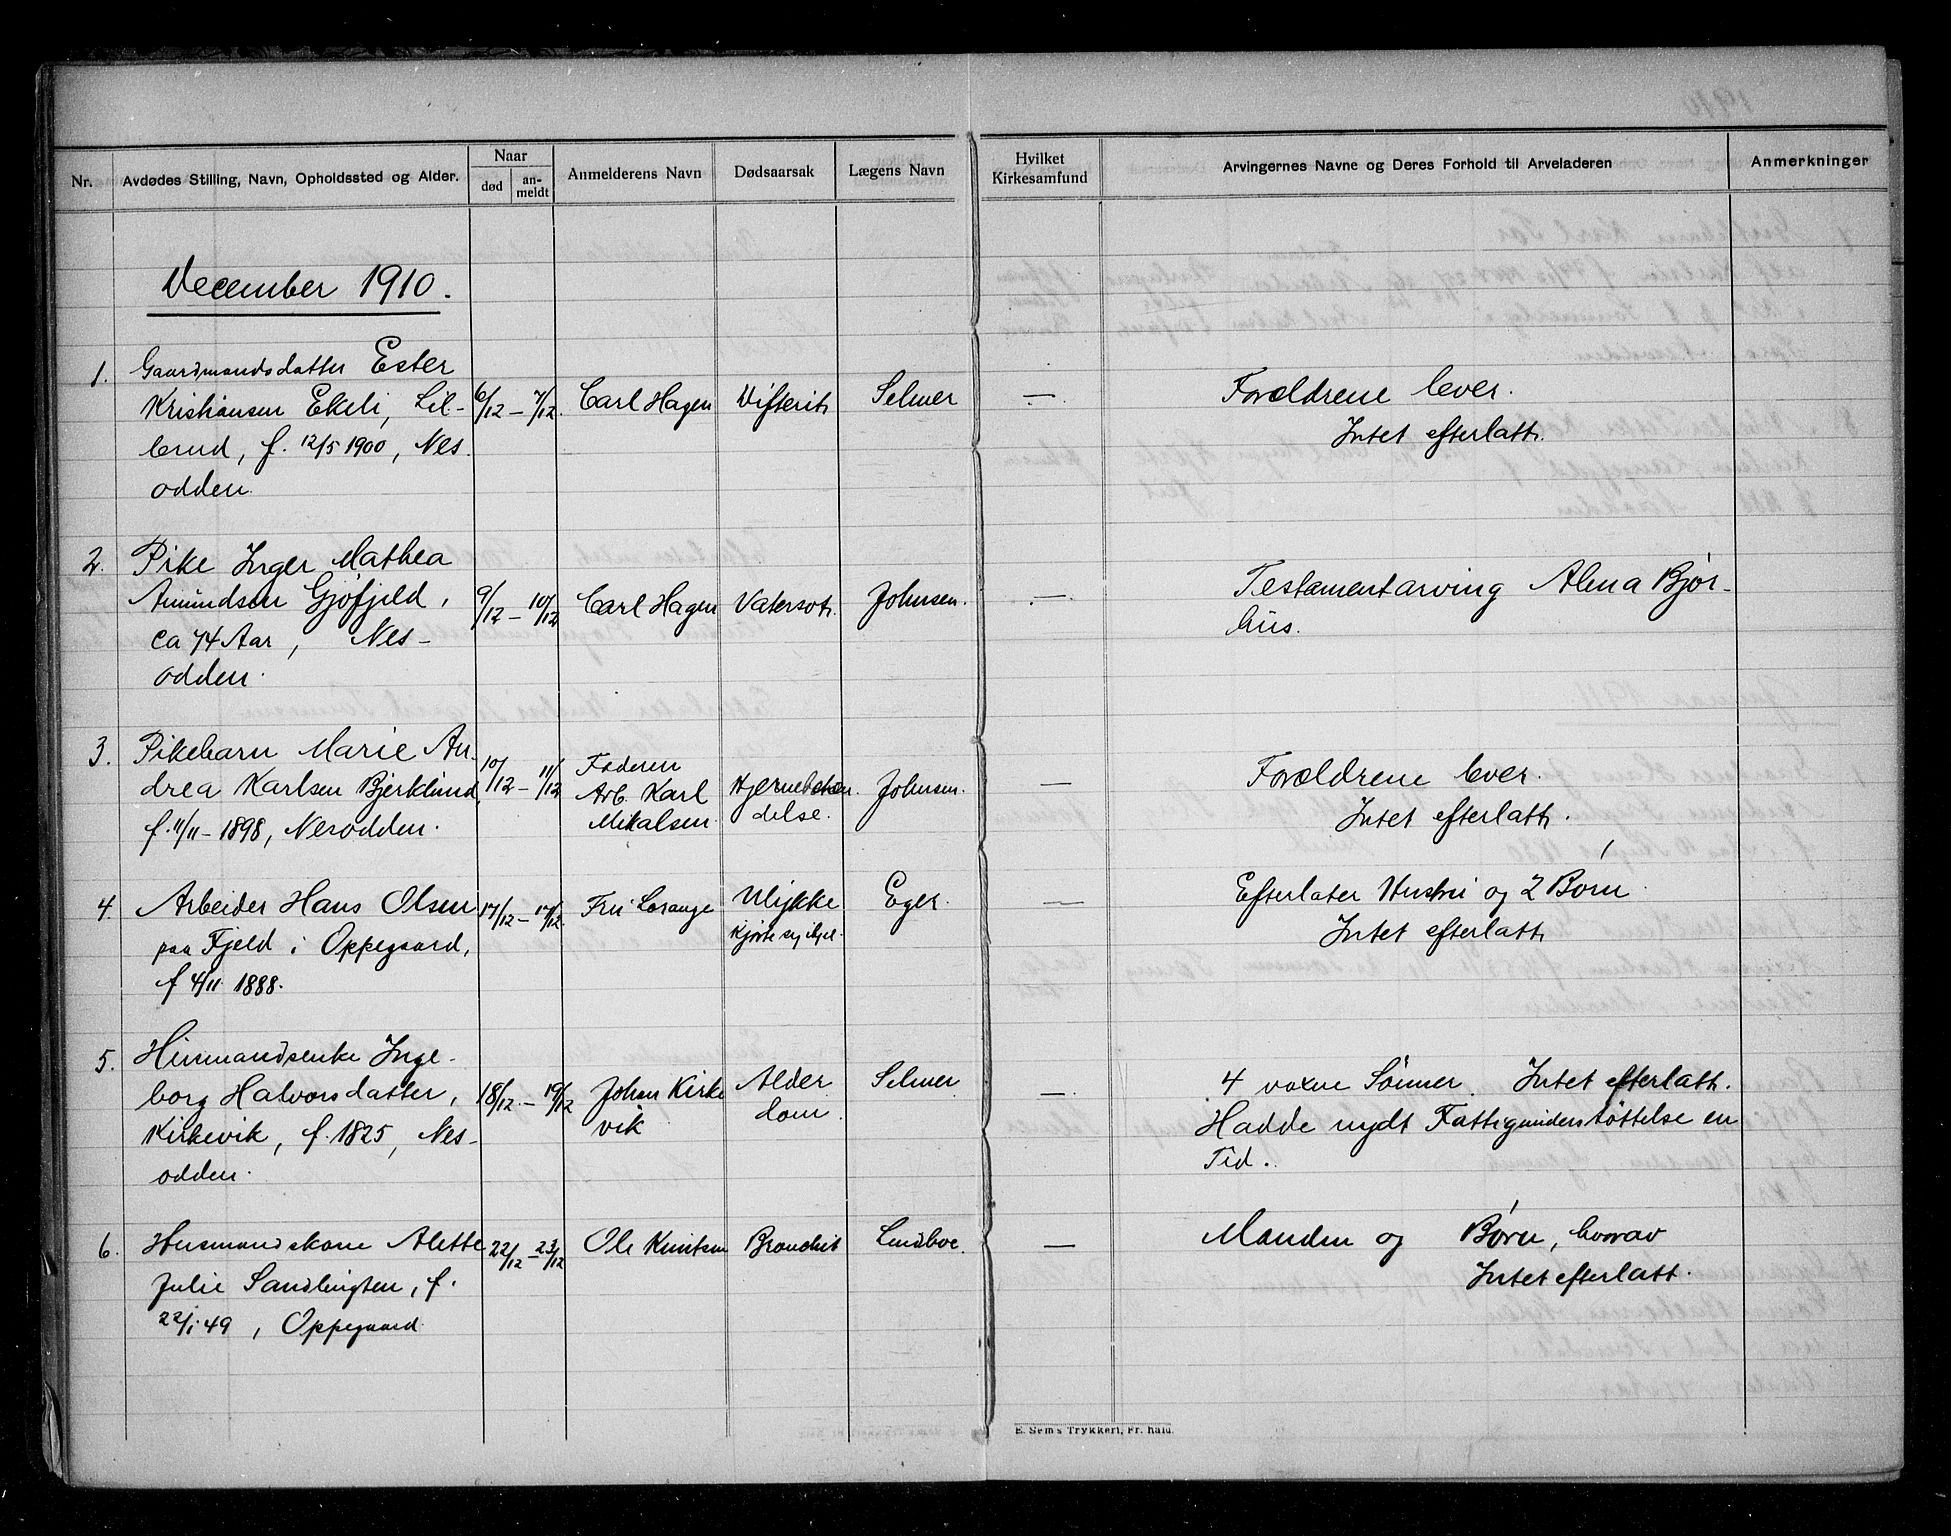 Nr.
Avdødes Stilling, Navn, Opholdssted og Alder.
Naar
død
an-
meldt
Anmelderens Navn
Dødsaarsak
Lægens Navn
Hvilket
Kirkesamfund
Arvingernes Navne og Deres Forhold til Arveladeren
Anmerkninger
December 1910.
1. Gaardmandsdatter Ester
Kristiansen Ekeli, Lil-
brud, f. 12/5 1900, Nes-
odden.
6/12 – 7/12.
Carl Hagen
Difterit
Selmer
—
Forældrene lever.
Intet efterlatt.
2. Pike Inger Mathea
Amundsen Gjøfjeld,
ca 74 Aar, Nes-
odden.
9/12 – 10/12
Carl Hagen
Vatersot.
Johnsen.
—
Testamentarving Alma Bjør-
hus.
3. Pikebarn Marie An-
drea Karlsen Bjerklund,
f. 11/11 - 1898, Nesodden.
10/12 – 11/12
Faderen
Arb. Karl
Mikalsen.
Hjernebetæn-
delse.
Johnsen.
—
Forældrene lever.
Intet efterlatt.
4. Arbeider Hans Olsen
paa Fjeld i Oppegaard,
f 4/11 1888.
17/12 – 17/12.
Fru Lorange
Ulykke
kjørte sig ihjel.
Eger.
—
Efterlater Hustru og 2 Børn.
Intet efterlatt
5. Husmandsenke Inge-
borg Halvorsdatter,
Kirkevik, f. 1825, Nes-
odden.
18/12. – 19/12
Johan Kirke
vik
Alder
dom.
Selmer
—
4 voxne Sønner. Intet efterlatt.
Hadde nydt Fattigunderstøttelse en
Tid.
6. Husmandskone Alette
Julie Sandbugten, f.
22/1 49, Oppegaard
22/12 – 23/12
Ole Knutsen
Bronchit
Lindboe.
—
Manden og Børn, hvorav
Intet efterlatt.
E. Sem's Trykkeri, Fr.hald.